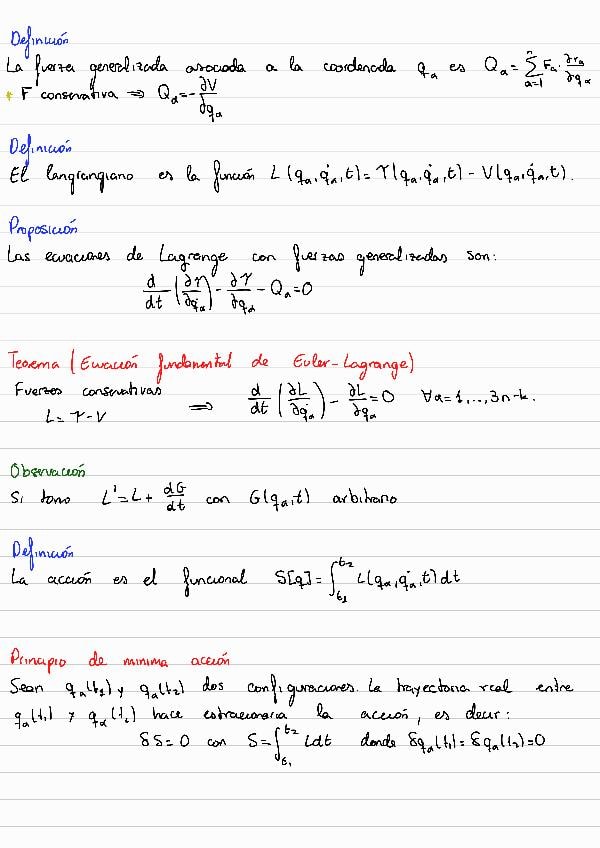 Definición
La fuerza generalizada asociada a la coordenada q_α es Q_α = \sum_{a=1}^{n} F_a · \frac{∂r_a}{∂q_α}
* F conservativa ⟹ Q_α = -\frac{∂V}{∂q_α}
Definición
El langrangiano es la función L(q_α, \dot{q}_α, t) = T(q_α, \dot{q}_α, t) - V(q_α, \dot{q}_α, t).
Proposición
Las ecuaciones de Lagrange con fuerzas generalizadas son:
\frac{d}{dt}(\frac{∂T}{∂\dot{q}_α}) - \frac{∂T}{∂q_α} - Q_α = 0
Teorema (Ecuación fundamental de Euler-Lagrange)
Fuerzas conservativas
L = T - V ⟹ \frac{d}{dt}(\frac{∂L}{∂\dot{q}_α}) - \frac{∂L}{∂q_α} = 0 ∀α = 1, ..., 3n-k.
Observación
Si tomo L' = L + \frac{dG}{dt} con G(q_α, t) arbitrario
Definición
La acción es el funcional S[q] = \int_{t_1}^{t_2} L(q_α, \dot{q}_α, t) dt
Principio de minima acción
Sean q_α(t_1) y q_α(t_2) dos configuraciones. La trayectoria real entre
q_α(t_1) y q_α(t_2) hace estacionaria la acción, es decir:
δS = 0 con S = \int_{t_1}^{t_2} L dt donde δq_α(t_1) = δq_α(t_2) = 0